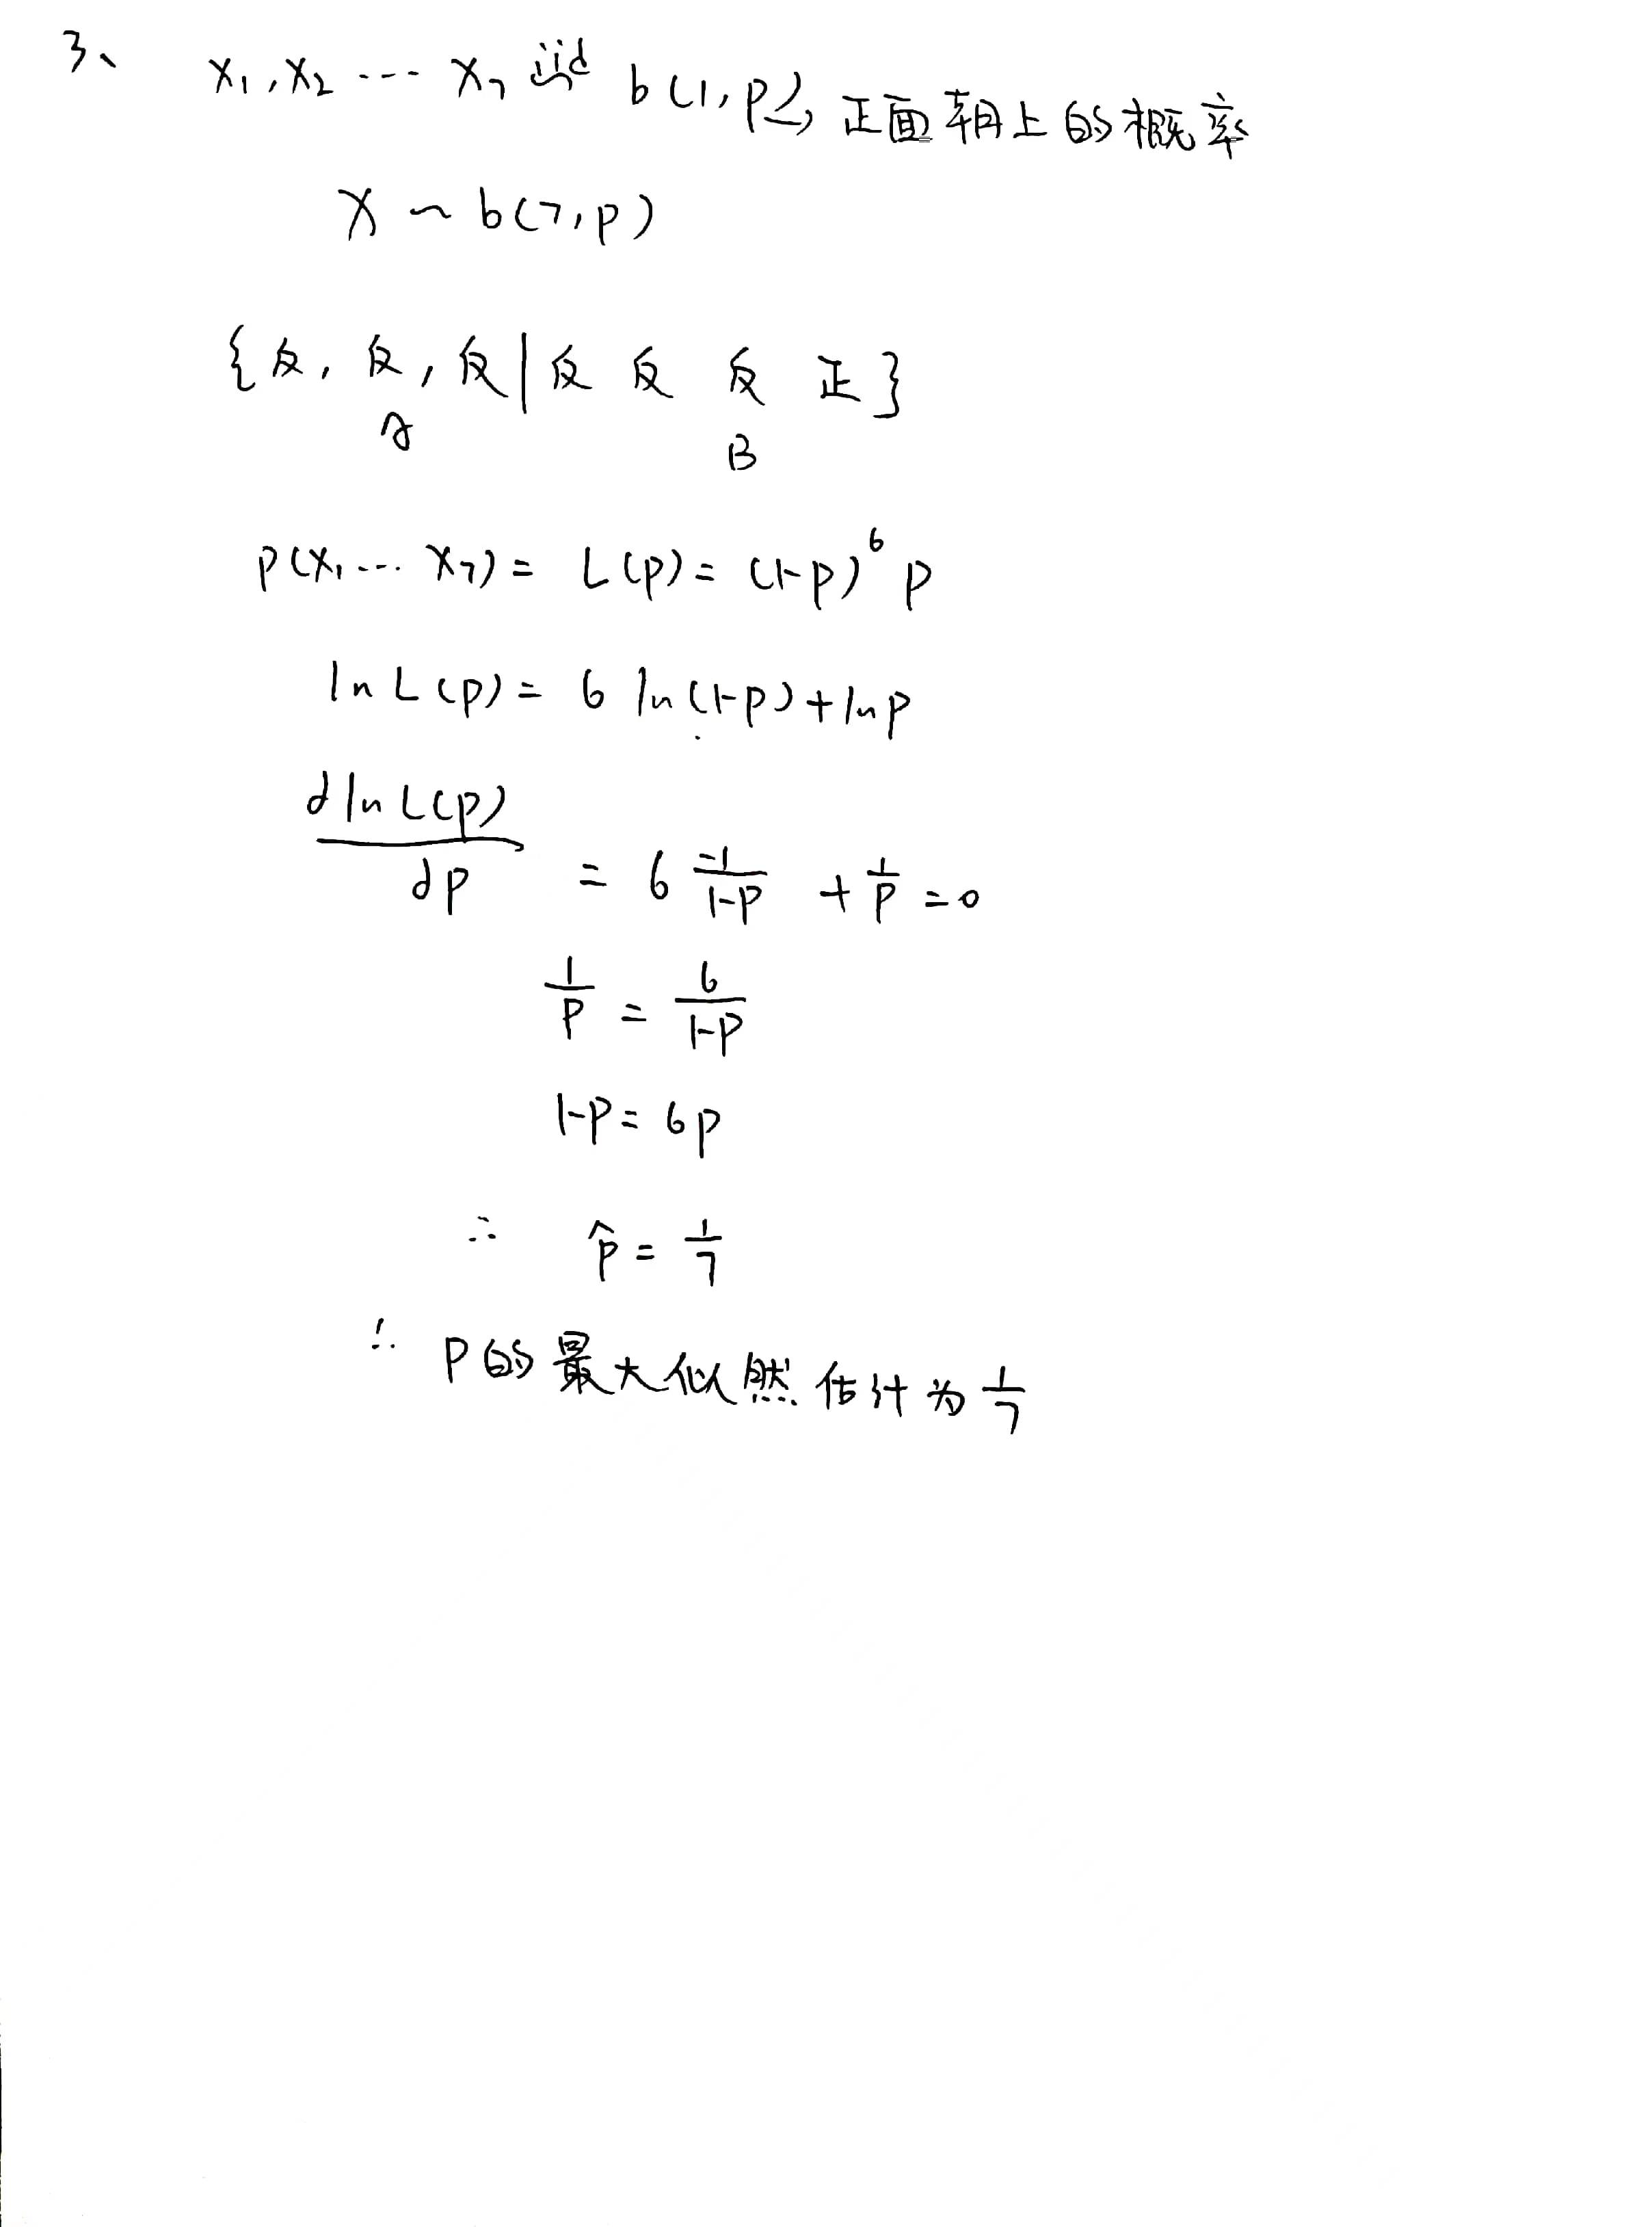 3、 X₁,X₂ --- X₇ iid b(1,p), 正面朝上的概率
X ~ b(7,p)
{反, 反, 反|反 反 反 正}
A B
P(X₁ --- X₇) = L(p) = (1-p)⁶ p
ln L(p) = 6 ln(1-p) + ln p
d ln L(p) / dp = 6 -1/(1-p) + 1/p = 0
1/p = 6/(1-p)
1-p = 6p
∴ p̂ = 1/7
∴ P的最大似然估计为 1/7